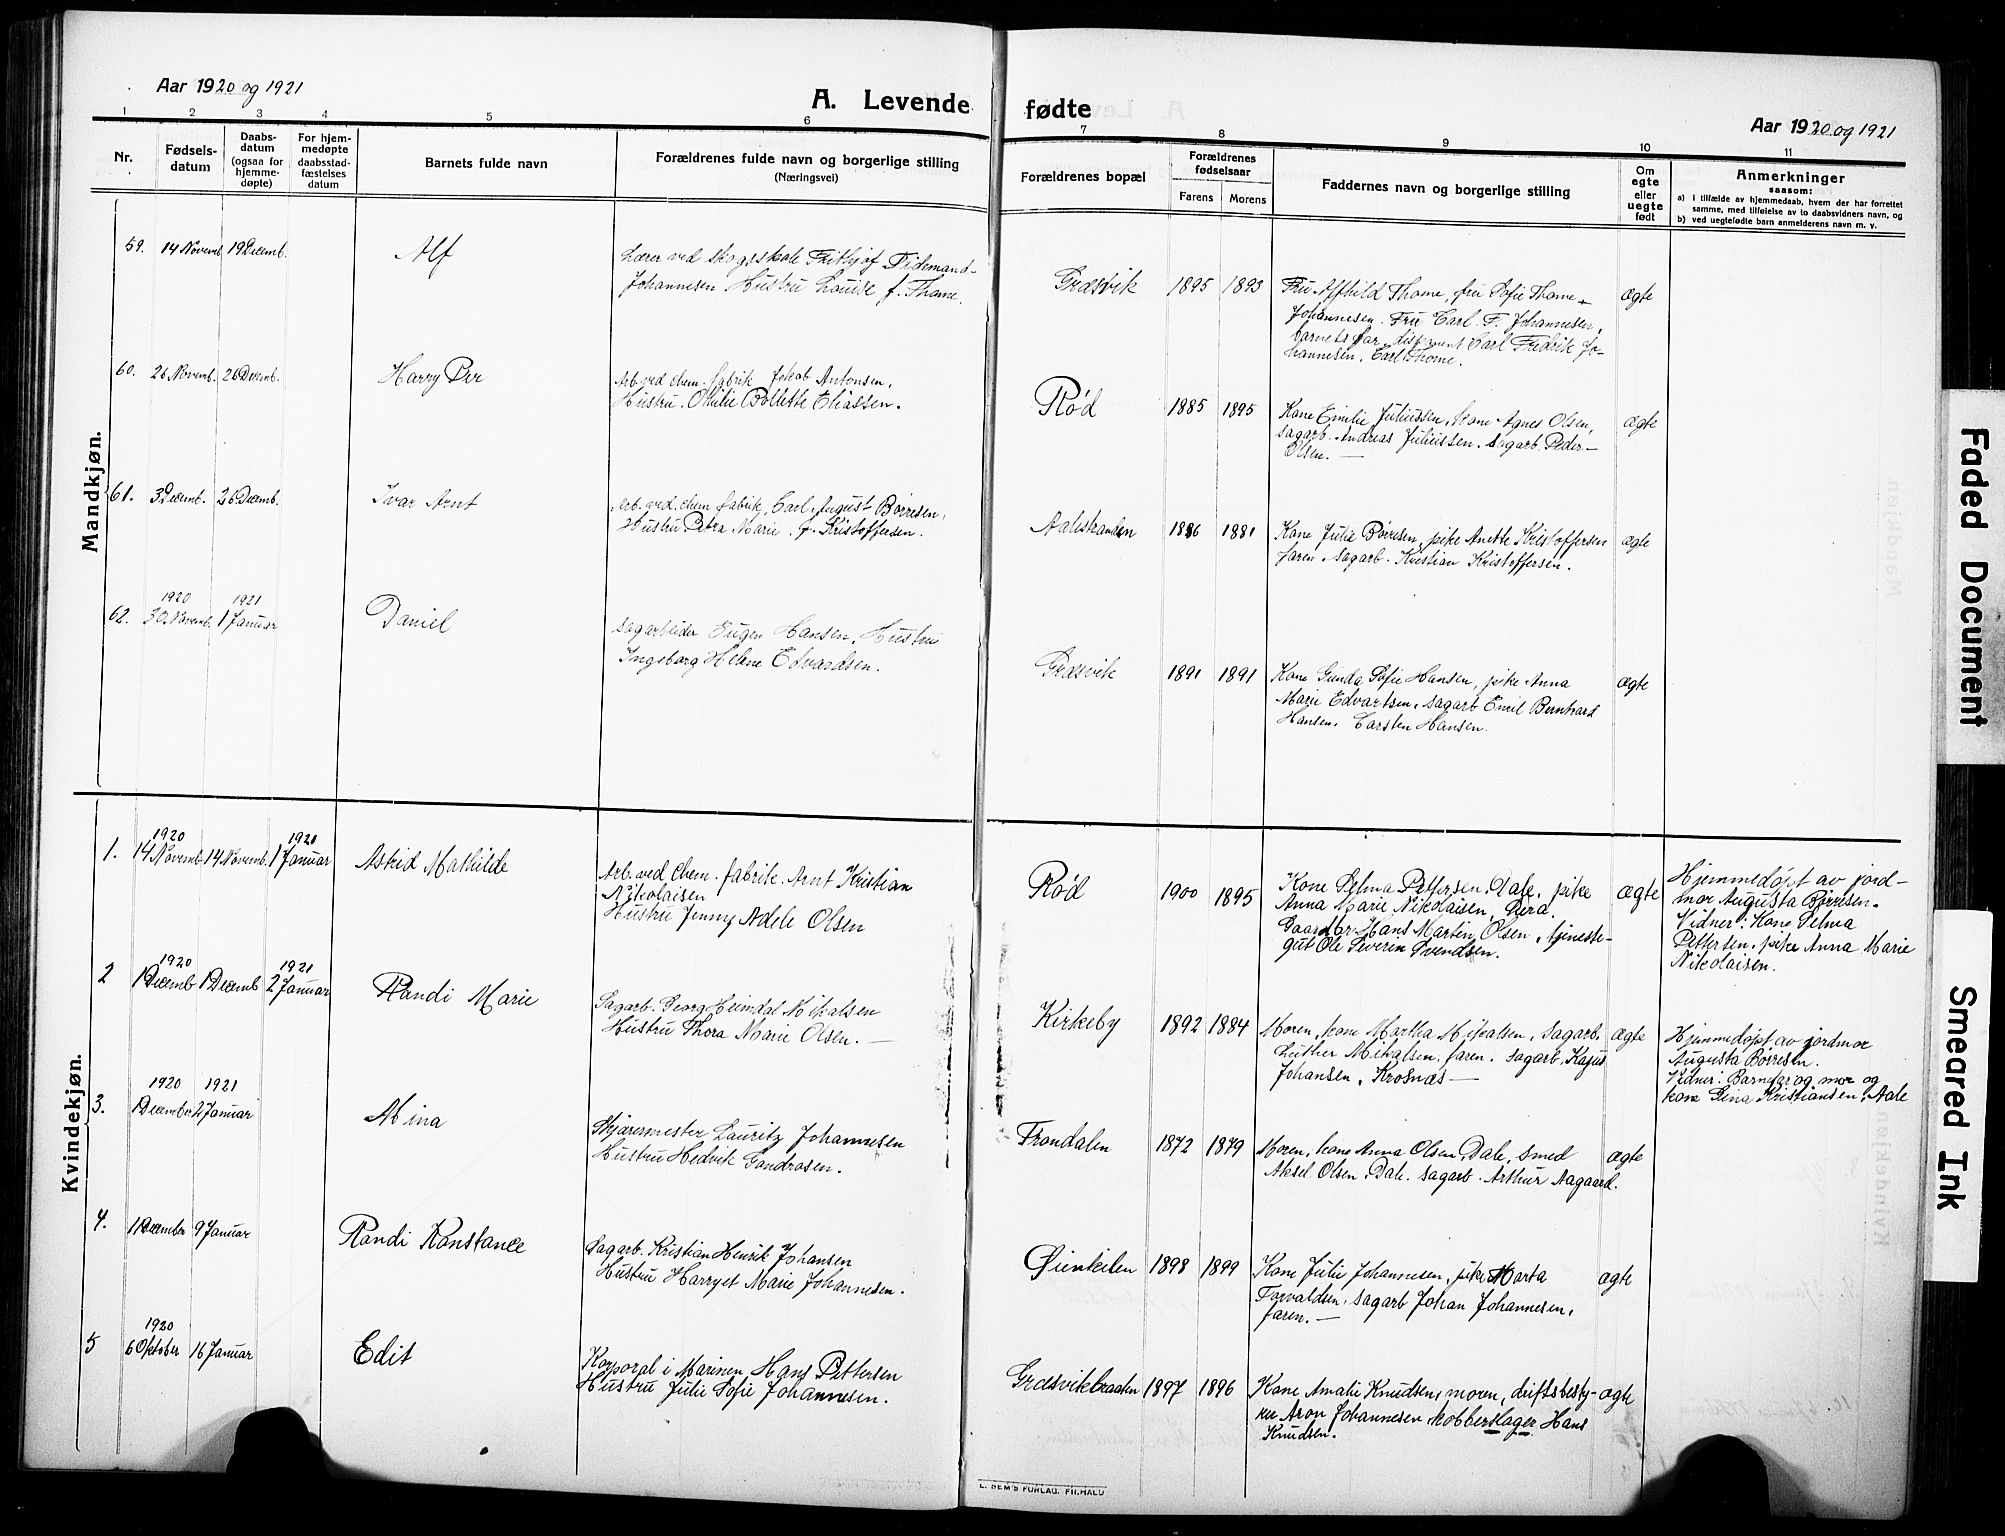 Aar 1920 og 1921
A. Levende
fødte
Aar 1920 og 1921
1 2 3 4 5 6 7 8 9 10 11
Nr.
Fødsels-
datum
Daabs-
datum
(ogsaa for
hjemme-
døpte)
For hjem-
medøpte
daabsstad-
fæstelses
datum
Barnets fulde navn
Forældrenes fulde navn og borgerlige stilling
(Næringsvei)
Forældrenes bopæl
Forældrenes
fødselsaar
Farens Morens
Faddernes navn og borgerlige stilling
Om
egte
eller
uegte
født
Anmerkninger
saasom:
a) i tilfælde av hjemmedaab, hvem der har forrettet
samme, med tilføielse av to daabsvidners navn, og
b) ved uegtefødte barn anmelderens navn m. v.
Mandkjøn.
59. 14 Novemb 19 Decemb. Alf
Lærer ved skogskole Frithjof Tidemand-
Johannesen. Hustru Louise f. Thome.
Græsvik 1895 1893
Fru Alfhild Thome, fru Sofie Thome
Johannesen. Fru Carl. F. Johannesen,
barnets far, disponent Carl Fredrik Jo-
hannesen, Carl Thome.
ægte
60. 26 Novemb. 26 Decemb. Harry Per
Arb. ved chem. fabrik Jakob Antonsen.
Hustru. Othilie Bollette Eliassen.
Rød 1885 1895
Kone Emilie Juliussen, kone Agnes Olsen,
sagarb. Andreas Juliussen. sagarb. Peder
Olsen. —
ægte
61. 3 Decemb. 26 Decemb. Ivar Arnt
Arb. ved. chem fabrik, Carl August Børresen,
Hustru Petra Marie. f. Kristoffersen.
Aalestranden 1886 1881
Kone Julie Børresen, pike Anette Kristoffersen
faren, sagarb. Kristian Kristoffersen.
ægte
1920 1921
62. 30. Novemb. 1 Januar Daniel
sagarbeider Eugen Hansen, Hustru
Ingeborg Helene Edvardsen.
Græsvik 1891 1891
Kone Gunda Sofie Hansen, pike Anna
Marie Edvartsen, sagarb Emil Bernhard
Hansen, Carsten Hansen.
ægte
Kvindekjøn.
1920 1921
1. 14 Novemb 14 Novemb. 1 Januar Astrid Mathilde
Arb. ved chem. fabrik. Arnt Kristian
Nikolaisen
Hustru Jenny Adele Olsen
Rød 1900 1895
Kone Selma Pettersen, Dale, pike
Anna Marie Nikolaisen,
Gaardbr. Hans Martin Olsen, tjeneste-
gut Ole Severin Svendsen.
ægte
Hjemmedøpt av jord-
mor Augusta Børresen.
Vidner: Kone Selma
Pettersen, pike Anna Marie
Nikolaisen.
1920 1921
2 1 Decemb 1 Decemb 2 Januar Randi Marie
Sagarb. Georg Heimdal Mikalsen
Hustru Thora Marie Olsen. —
Kirkeby 1892 1884
Moren, kone Martha Mikalsen, sagarb.
Luther Mikalsen, faren. sagarb. Kajus
Johansen, Krosnæs —
ægte
Hjemmedøpt av jordmor
Augusta Børresen.
Vidner: Barnefar og mor og
kone Gina Kristiansen, Aale
1920 1921
3. 1 December 2 Januar Mina
Skjæremester Lauritz Johannesen
Hustru Hedvik Gondrosen.
Trondalen 1872 1879
Moren, kone Anna Olsen, Dale, smed
Aksel Olsen, Dale. sagarb. Arthur Aagaard.
ægte
4. 1 December 9 Januar Randi Konstance
Sagarb. Kristian Henrik Johansen
Hustru Harryet Marie Johannesen.
Øienkilen 1898 1899
Kone Julie Johannesen, pike Marta
Torvaldsen, sagarb Johan Johannesen,
faren. —
ægte
1920
5 6 Oktober 16 Januar Edit
Korporal i Marinen Hans Pettersen
Hustru Julie Sofie Johannesen.
Græsvikbraaten 1897 1896
Kone Amalie Knudsen, moren, driftsbesty-
rer Aron Johannesen, kobberslager Hans
Knudsen.
ægte
E. SEM'S FORLAG. FR.HALD
Faded Document
Smeared Ink